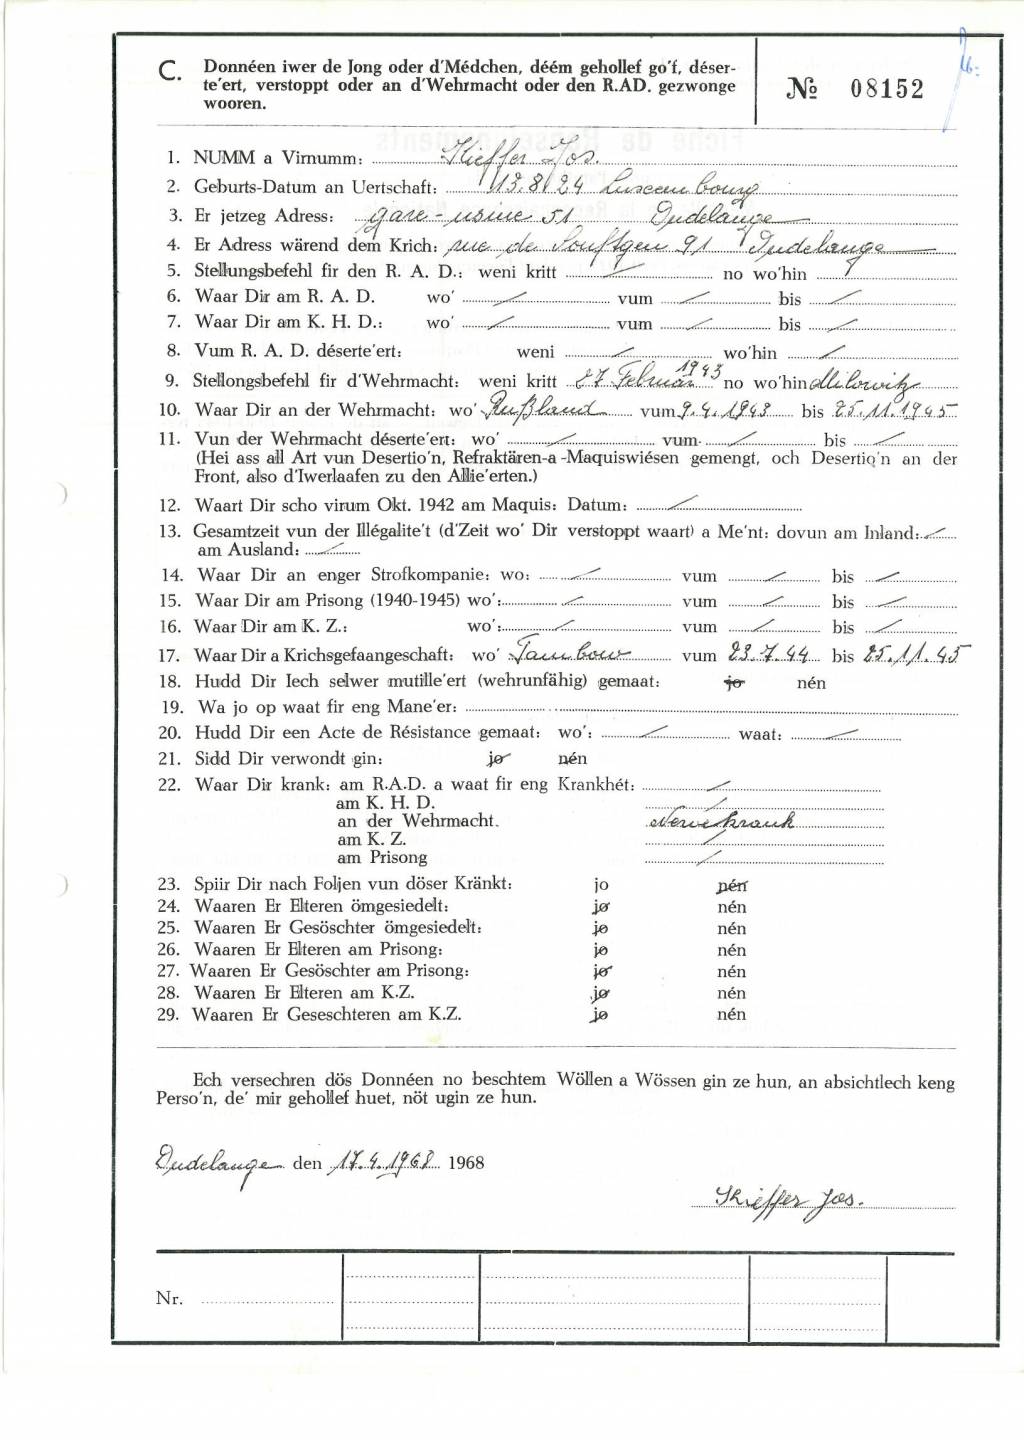 C. Donnéen iwer de Jong oder d'Médchen, déém gehollef go'f, déser-
te'ert, verstoppt oder an d'Wehrmacht oder den R.AD. gezwonge
wooren.
№ 08152
1. NUMM a Virnumm: Kieffer Jos.
2. Geburts-Datum an Uertschaft: 13.8.24 Luxembourg
3. Er jetzeg Adress: gare-usine 51 Dudelange
4. Er Adress wärend dem Krich: rue de Zoufftgen 91 Dudelange
5. Stellungsbefehl fir den R. A. D.: weni kritt / no wo'hin /
6. Waar Dir am R. A. D. wo' / vum / bis /
7. Waar Dir am K. H. D.: wo' / vum / bis /
8. Vum R. A. D. déserte'ert: weni / wo'hin /
9. Stellongsbefehl fir d'Wehrmacht: weni kritt 27 Februar 1943 no wo'hin Milowitz
10. Waar Dir an der Wehrmacht: wo' Rußland vum 9.4.1943 bis 25.11.1945
11. Vun der Wehrmacht déserte'ert: wo' / vum / bis /
(Hei ass all Art vun Desertio'n, Refraktären-a-Maquiswiésen gemengt, och Desertio'n an der
Front, also d'Iwerlaafen zu den Allie'erten.)
12. Waart Dir scho virum Okt. 1942 am Maquis: Datum: /
13. Gesamtzeit vun der Illégalite't (d'Zeit wo' Dir verstoppt waart) a Me'nt: dovun am Inland: /
am Ausland: /
14. Waar Dir an enger Strofkompanie: wo: / vum / bis /
15. Waar Dir am Prisong (1940-1945) wo': / vum / bis /
16. Waar Dir am K. Z.: wo': / vum / bis /
17. Waar Dir a Krichsgefaangeschaft: wo' Tambow vum 23.7.44 bis 25.11.45
18. Hudd Dir Iech selwer mutille'ert (wehrunfähig) gemaat: jo nén
19. Wa jo op waat fir eng Mane'er:
20. Hudd Dir een Acte de Résistance gemaat: wo': / waat: /
21. Sidd Dir verwondt gin: jo nén
22. Waar Dir krank: am R.A.D. a waat fir eng Krankhét: /
am K. H. D. /
an der Wehrmacht. Nervekrank
am K. Z. /
am Prisong /
23. Spiir Dir nach Foljen vun döser Kränkt: jo nén
24. Waaren Er Elteren ömgesiedelt: jo nén
25. Waaren Er Gesöschter ömgesiedelt: jo nén
26. Waaren Er Elteren am Prisong: jo nén
27. Waaren Er Gesöschter am Prisong: jo nén
28. Waaren Er Elteren am K.Z. jo nén
29. Waaren Er Geseschteren am K.Z. jo nén
Ech versechren dös Donnéen no beschtem Wöllen a Wössen gin ze hun, an absichtlech keng
Perso'n, de' mir gehollef huet, nöt ugin ze hun.
Dudelange den 17.4.1968 1968
Kieffer Jos.
Nr.